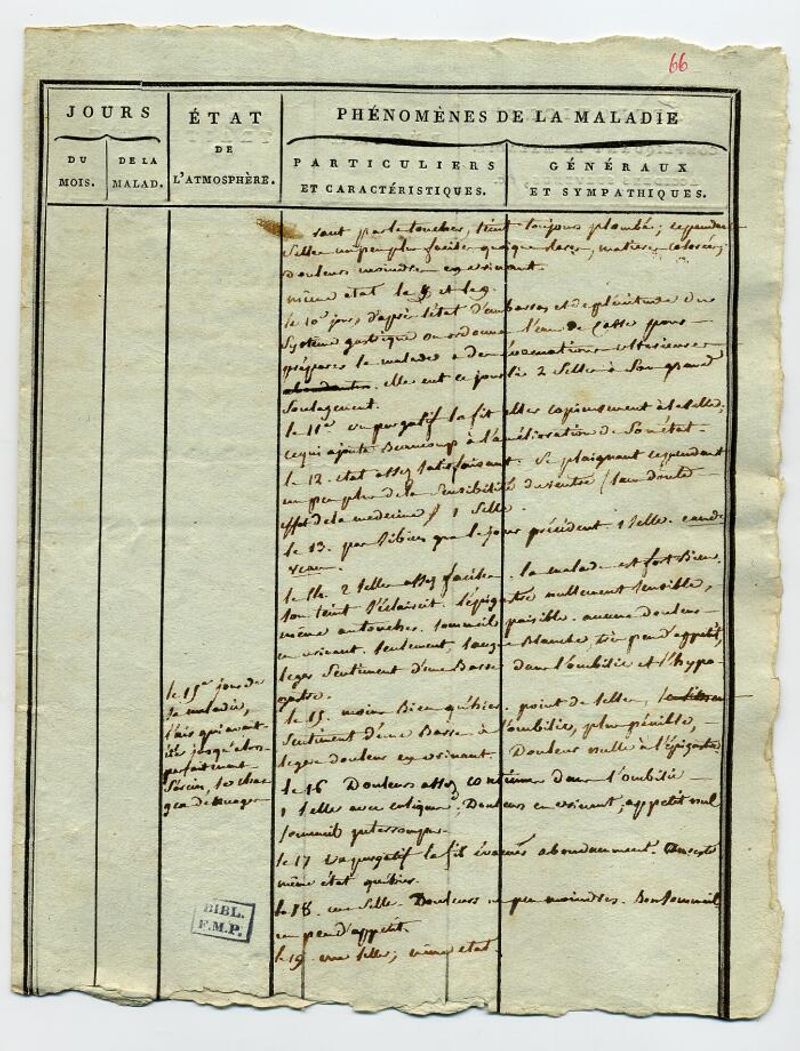 66
JOURS
DU MOIS.
DE LA MALAD.
ÉTAT
DE
L'ATMOSPHÈRE.
PHÉNOMÈNES DE LA MALADIE
PARTICULIERS
ET CARACTÉRISTIQUES.
GÉNÉRAUX
ET SYMPATHIQUES.
par le toucher, teint toujours plombé; cependant
Selles un peu plus faciles quoique dures, matieres colorées,
douleurs moindres en urinant.
même état le 8 et le 9.
le 10e jour, d'après l'état d'embarras et de plénitude du
Systeme gastrique on ordonna l'eau de Casse pour
préparer la malade a des évacuations ulterieures
elle eut ce jour là 2 Selles à Son grand
Soulagement.
le 11e un purgatif la fit aller copieusement à la Selle,
ce qui ajouta Beaucoup à l'amélioration de Son état.
le 12. etat assez Satisfaisant. Se plaignant cependant
un peu plus de la Sensibilité du ventre (sans doute
effet de la medecine) 1 Selle.
le 13. pas si bien que le jour précédent. 1 Selle.
le 14. 2 Selles assez faciles. la malade est fort Bien.
Son teint S'éclaircit. l'épigastre nullement Sensible,
même au toucher. Sommeil paisible. aucune douleur
en urinant. Seulement, langue Blanche, très peu d'appétit,
leger Sentiment d'emBarras dans l'ombilic et l'hypo
gastre.
le 15. moins Bien qu'hier. point de Selles,
Sentiment d'emBarras à l'ombilic, plus pénible,
legere douleur en urinant. Douleur nulle à l'épigastre
le 15e jour de
la maladie,
l'air qui avait
été jusqu'alors
parfaitement
Serein, se char
gea de nuages
le 16 Douleurs assez continues dans l'ombilic
1 Selle avec coliques; Douleurs en urinant, appetit nul
Sommeil interrompu.
le 17 un purgatif la fit évacuer abondamment. Du reste
même état qu'hier.
le 18. une Selle. Douleurs un peu moindres. Bon Sommeil,
un peu d'appétit.
le 19. une Selle; même etat
BIBL.
F.M.P.